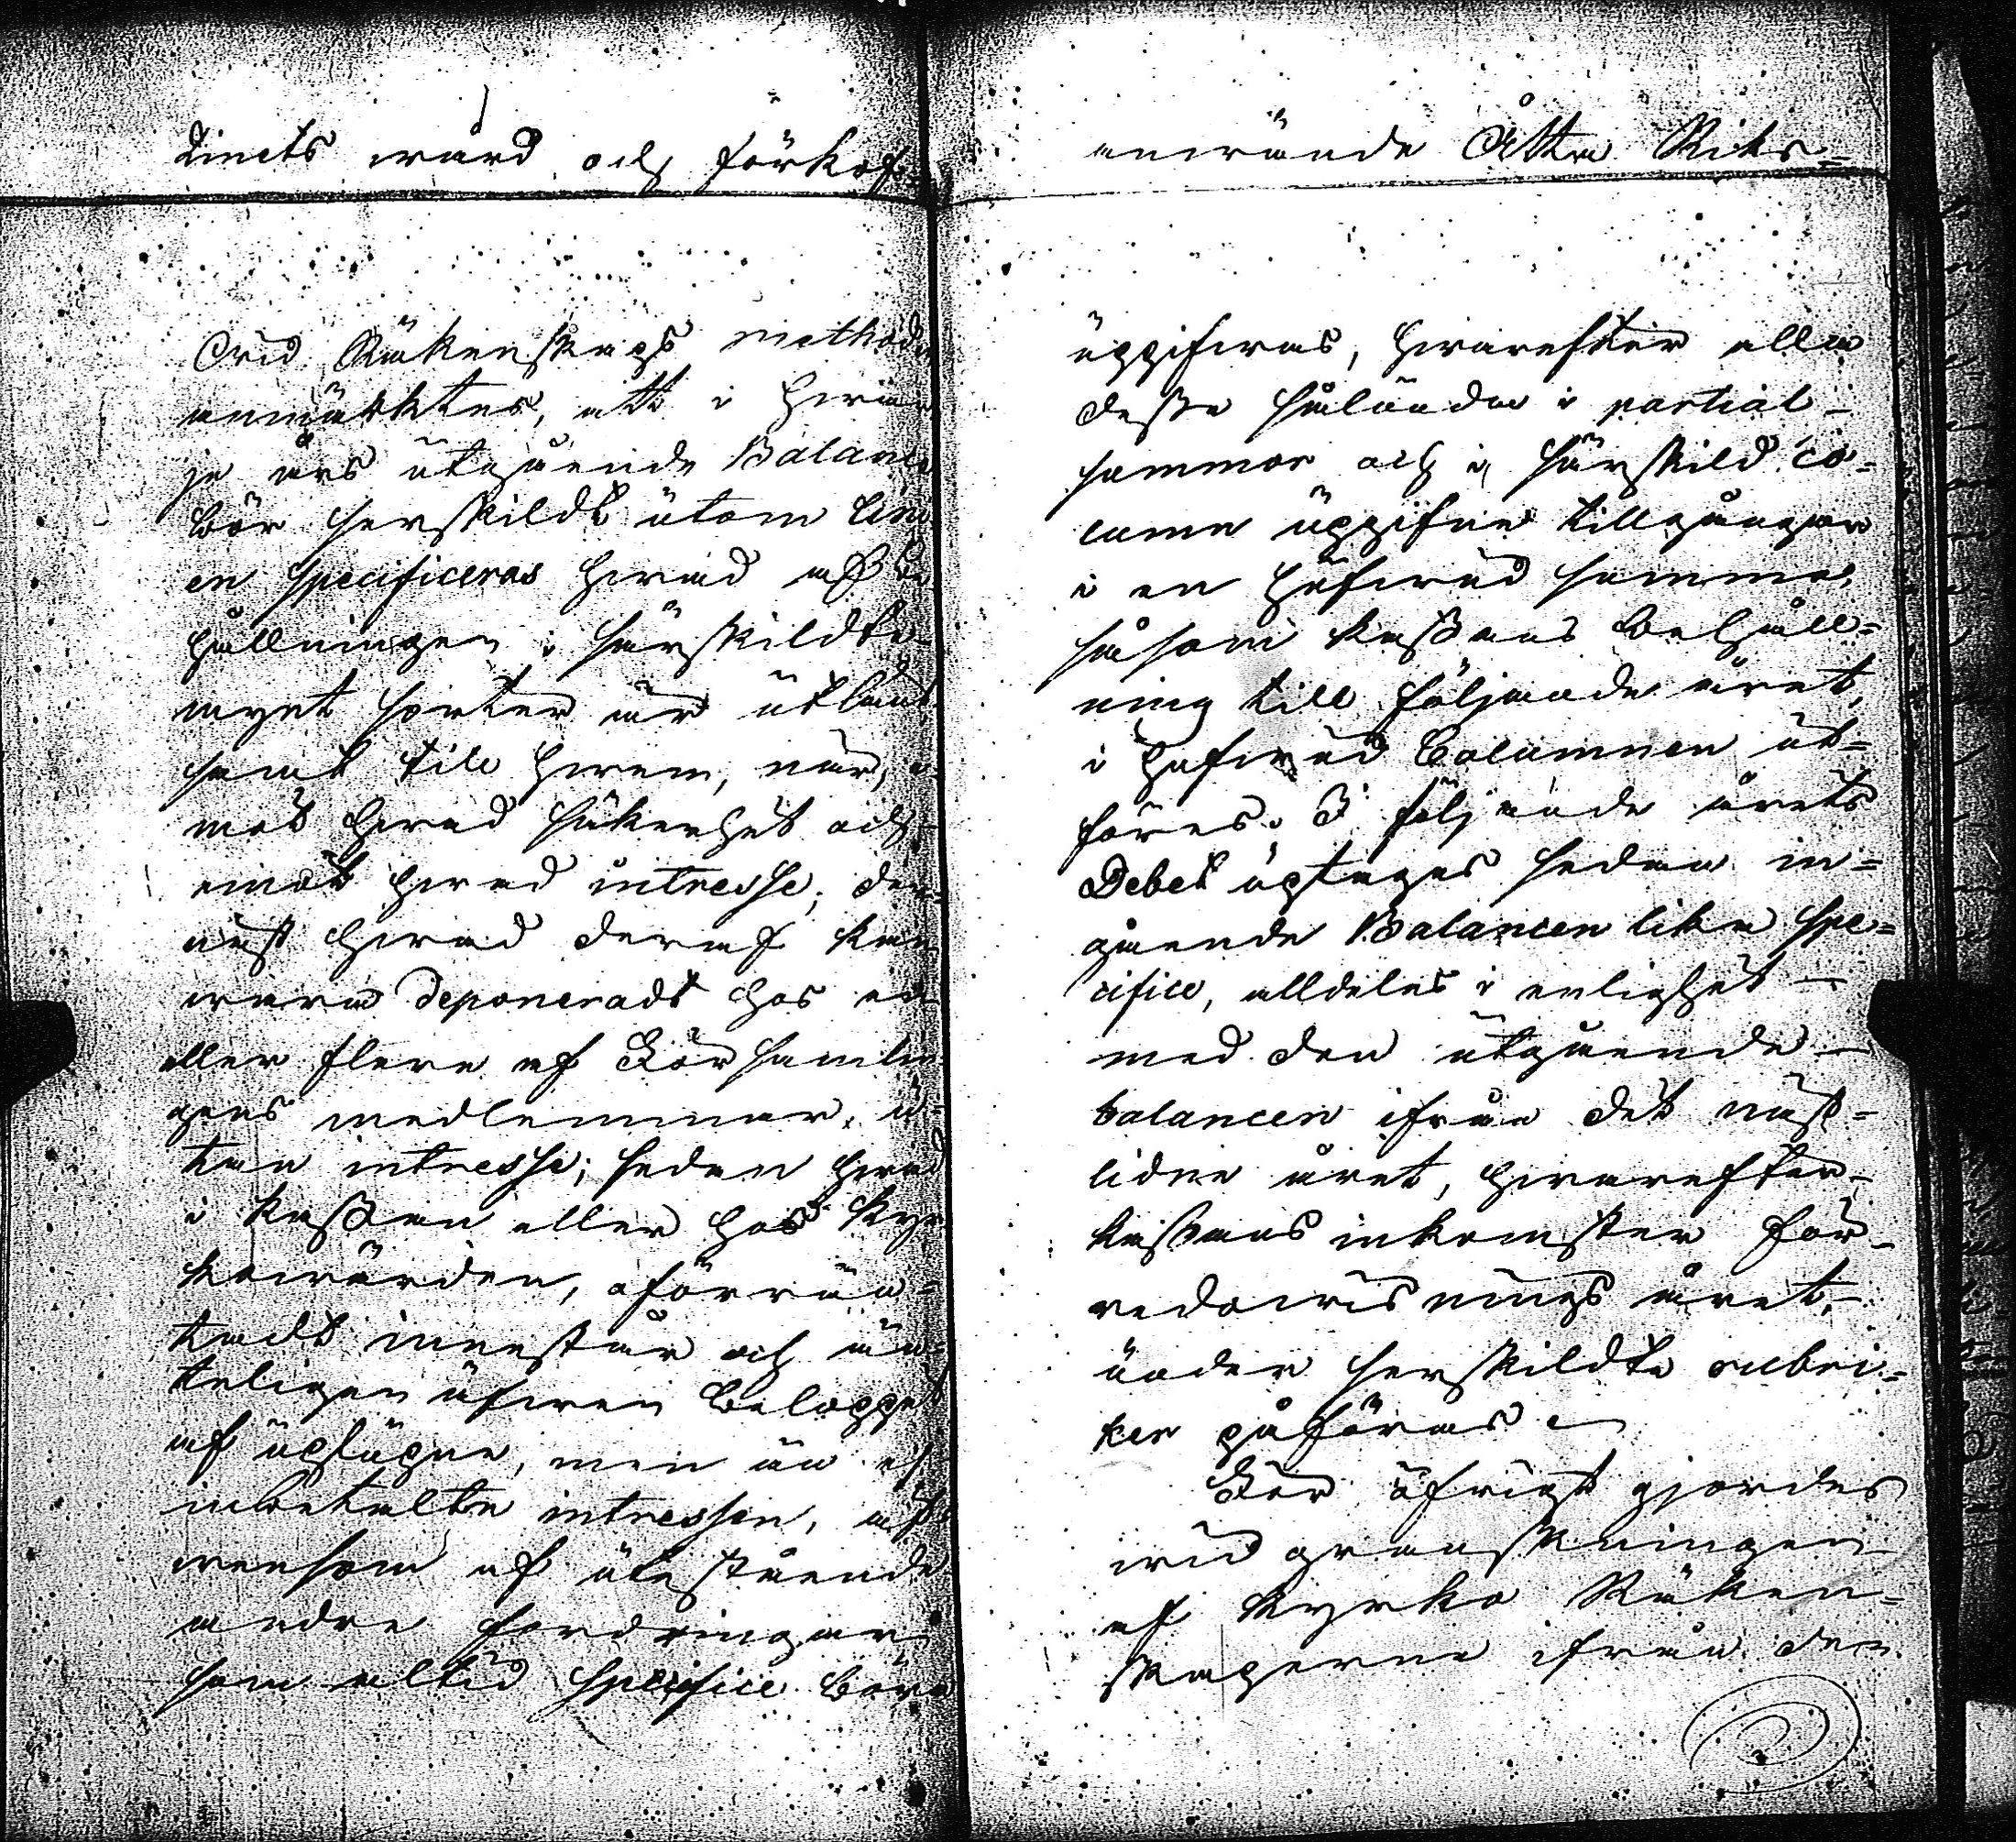 dinets wård och förkof-
Wid Räkenskaps methoden
anmärktes, att i hwar
je års utgående Balance
bör serskildt utom lini
en specificeras hwad af Be
hållningen i särskildte
mynt sorter är utlånt
samt till hwem, när, e-
mot hwad säkerhet och
emot hwad intresse, der-
näst hwad deraf kan
wara deponeradt hos en
eller flere af Församlin
gens medlemmar, u-
tan intresse; sedan hwad
i Kassan eller hos Kyr
kowärden, oförrän-
tadt innestår och än-
teligen äfwen Beloppet
af uplupne, men än ej
inbetalte intressen, äf-
wensom af utestående
andre fordringar
som altid specifice böra
anwände Åtta Riks-
uppgifwas, hwarefter alla
desse sålunda i partial-
summor och i särskild co-
lumn uppgifne tillgångar
i en hufwud summa,
såsom kassans behåll-
ning till följande året,
i hufwud Columnen ut-
föres. I följande årets
Debet uptages sedan in-
gående Balancen lika spe-
cifice, alldeles i enlighet
med den utgående
balancen ifrån det näst-
lidne året, hwarefter
kassans inkomster för
redowisnings året,
under serskildte rubri-
ker påföras
För öfrigt gjordes
wid granskningen
af Kyrko Räken-
skaperne ifrån den